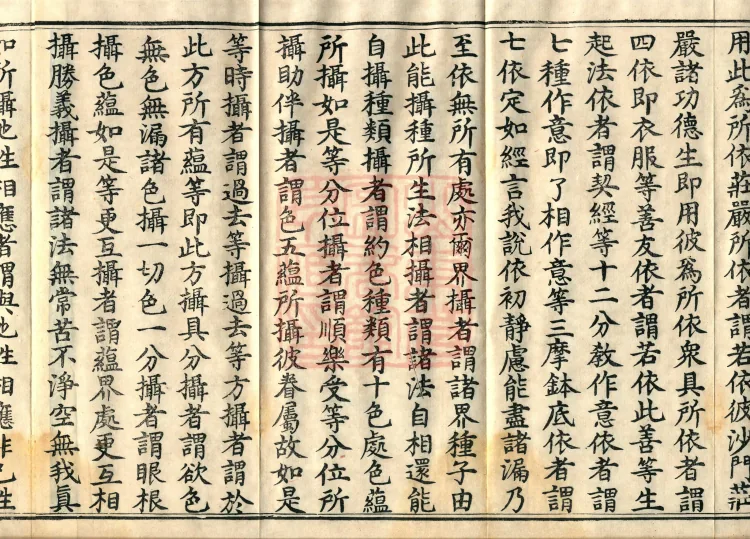 用此為所依莊嚴所依者謂若依彼沙門莊
嚴諸功德生即用彼為所依眾具所依者謂
四依即衣服等善友依者謂若依此善等生
起法依者謂契經等十二分教作意依者謂
七種作意即了相作意等三摩鉢底依者謂
七依定如經言我說依初靜慮能盡諸漏乃
至依無所有處亦爾界攝者謂諸界種子由
此能攝種所生法相攝者謂諸法自相還能
自攝種類攝者謂約色種類有十色處色蘊
所攝如是等分位攝者謂順樂受等分位所
攝助伴攝者謂色五蘊所攝彼眷屬故如是
等時攝者謂過去等攝過去等方攝者謂於
此方所有蘊等即此方攝具分攝者謂欲色
無色無漏諸色攝一切色一分攝者謂眼根
攝色蘊如是等更互攝者謂蘊界處更互相
攝勝義攝者謂諸法無常苦不淨空無我真
如所攝他性相應者謂與他性相應非己性